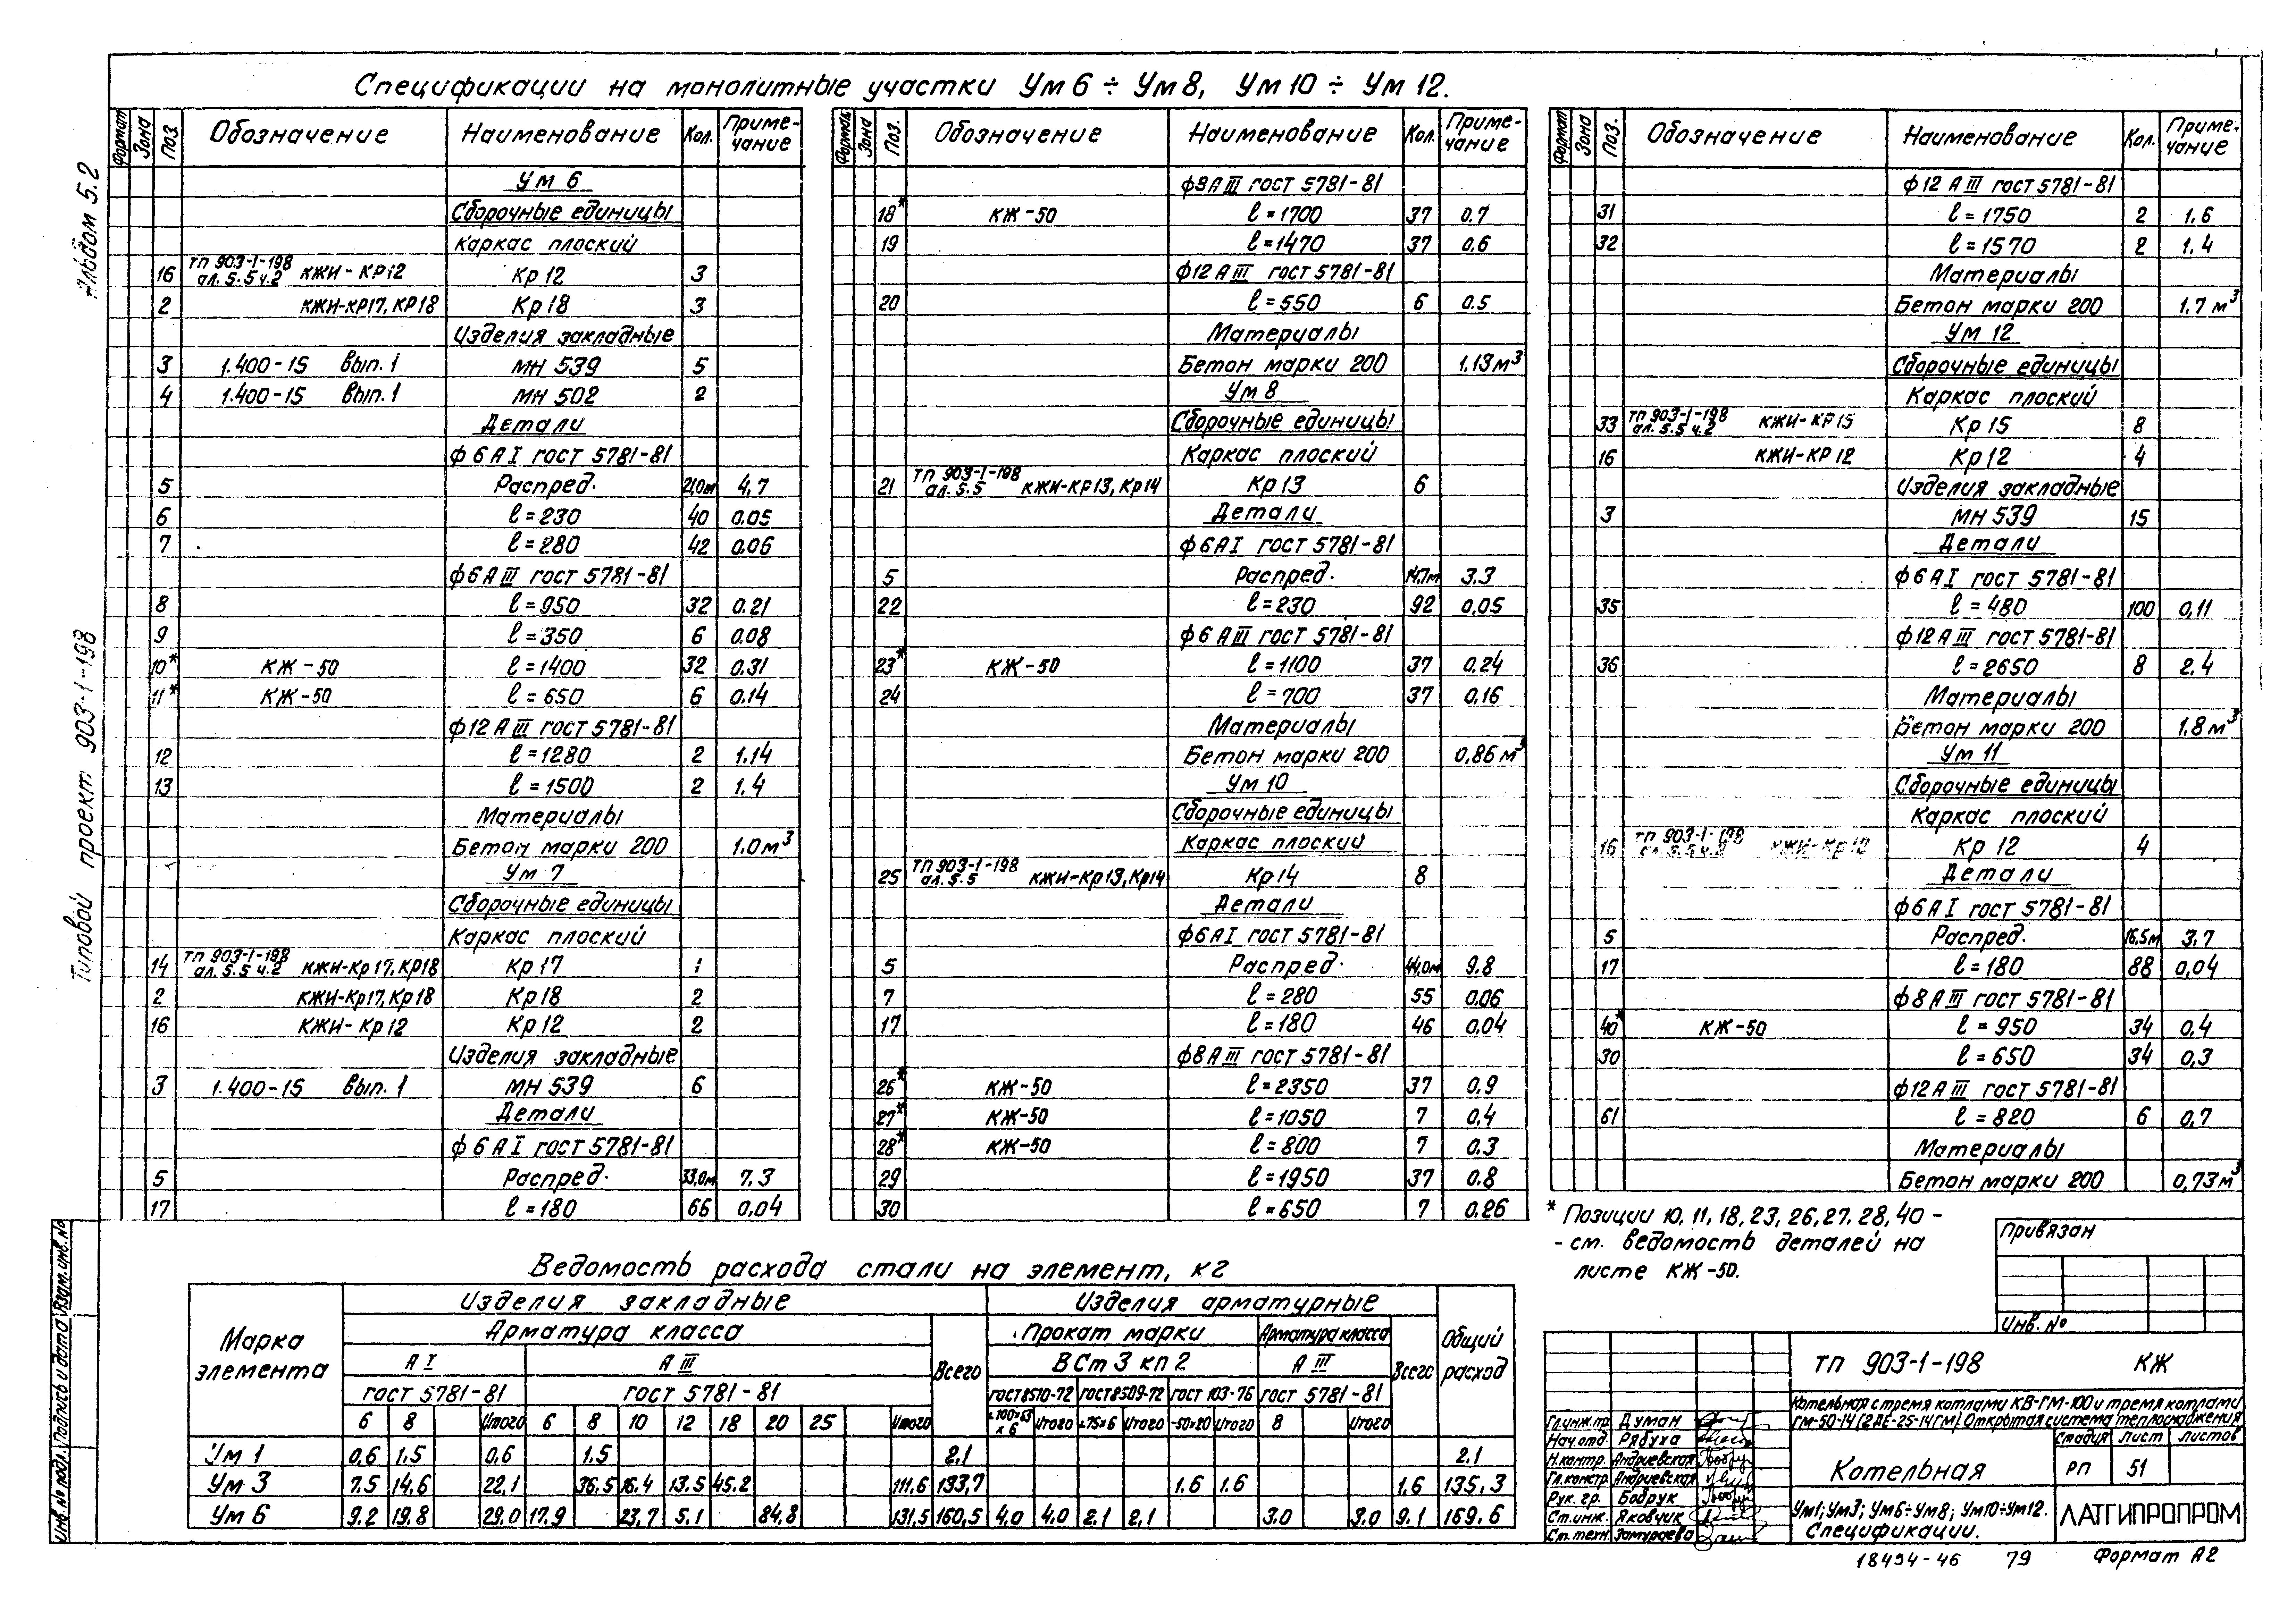 Спецификации на монолитные участки Ум 6 ÷ Ум 8, Ум 10 ÷ Ум 12.
Альбом 5.2
Типовой проект 903-1-198
Формат Зона Поз. Обозначение Наименование Кол. Примечание
Ум 6
Сборочные единицы
Каркас плоский
16 ТП 903-1-198 ал. 5.5 ч.2 КЖИ-КР12 Кр 12 3
2 КЖИ-КР17, КР18 Кр 18 3
Изделия закладные
3 1.400-15 вып. 1 МН 539 5
4 1.400-15 вып. 1 МН 502 2
Детали
ф 6 А I ГОСТ 5781-81
5 Распред. 21,0м 4,7
6 ℓ = 230 40 0.05
7 ℓ = 280 42 0.06
ф 6 А III ГОСТ 5781-81
8 ℓ = 950 32 0.21
9 ℓ = 350 6 0.08
10* КЖ-50 ℓ = 1400 32 0.31
11* КЖ-50 ℓ = 650 6 0.14
ф 12 А III ГОСТ 5781-81
12 ℓ = 1280 2 1.14
13 ℓ = 1500 2 1.4
Материалы
Бетон марки 200 1.0 м³
Ум 7
Сборочные единицы
Каркас плоский
14 ТП 903-1-198 ал. 5.5 ч.2 КЖИ-Кр17, КР18 Кр 17 1
2 КЖИ-Кр17, Кр18 Кр 18 2
16 КЖИ-Кр12 Кр 12 2
Изделия закладные
3 1.400-15 вып. 1 МН 539 6
Детали
ф 6 А I ГОСТ 5781-81
5 Распред. 33,0м 7.3
17 ℓ = 180 66 0,04
Формат Зона Поз. Обозначение Наименование Кол. Примечание
ф8 А III ГОСТ 5781-81
18* КЖ-50 ℓ = 1700 37 0.7
19 ℓ = 1470 37 0.6
ф12 А III ГОСТ 5781-81
20 ℓ = 550 6 0.5
Материалы
Бетон марки 200 1.13 м³
Ум 8
Сборочные единицы
Каркас плоский
21 ТП 903-1-198 ал. 5.5 КЖИ-Кр13, Кр14 Кр 13 6
Детали
ф 6 А I ГОСТ 5781-81
5 Распред. 14,7м 3.3
22 ℓ = 230 92 0,05
ф 6 А III ГОСТ 5781-81
23* КЖ-50 ℓ = 1100 37 0,24
24 ℓ = 700 37 0,16
Материалы
Бетон марки 200 0,86 м³
Ум 10
Сборочные единицы
Каркас плоский
25 ТП 903-1-198 ал. 5.5 КЖИ-Кр13, Кр14 Кр 14 8
Детали
ф 6 А I ГОСТ 5781-81
5 Распред. 44,0м 9.8
7 ℓ = 280 55 0.06
17 ℓ = 180 46 0,04
ф8 А III ГОСТ 5781-81
26* КЖ-50 ℓ = 2350 37 0.9
27* КЖ-50 ℓ = 1050 7 0.4
28* КЖ-50 ℓ = 800 7 0.3
29 ℓ = 1950 37 0.8
30 ℓ = 650 7 0.26
Формат Зона Поз. Обозначение Наименование Кол. Примечание
ф 12 А III ГОСТ 5781-81
31 ℓ = 1750 2 1.6
32 ℓ = 1570 2 1.4
Материалы
Бетон марки 200 1,7 м³
Ум 12
Сборочные единицы
Каркас плоский
33 ТП 903-1-198 ал. 5.5 ч.2 КЖИ-КР15 Кр 15 8
16 КЖИ-КР12 Кр 12 4
Изделия закладные
3 МН 539 15
Детали
ф 6 А I ГОСТ 5781-81
35 ℓ = 480 100 0,11
ф 12 А III ГОСТ 5781-81
36 ℓ = 2650 8 2.4
Материалы
Бетон марки 200 1.8 м³
Ум 11
Сборочные единицы
Каркас плоский
16 ТП 903-1-198 КЖИ-Кр12 Кр 12 4
Детали
ф 6 А I ГОСТ 5781-81
5 Распред. 16,5м 3,7
17 ℓ = 180 88 0,04
ф 8 А III ГОСТ 5781-81
40* КЖ-50 ℓ = 950 34 0,4
30 ℓ = 650 34 0,3
ф12 А III ГОСТ 5781-81
61 ℓ = 820 6 0,7
Материалы
Бетон марки 200 0,73 м³
* Позиции 10, 11, 18, 23, 26, 27, 28, 40 -
- см. ведомость деталей на
листе КЖ-50.
Ведомость расхода стали на элемент, кг
Марка элемента Изделия закладные Изделия арматурные Общий расход
Арматура класса Всего Прокат марки Арматура класса Всего
А I А III ВСт 3 кп 2 А III
ГОСТ 5781-81 ГОСТ 5781-81 ГОСТ 8510-72 ГОСТ 8509-72 ГОСТ 103-76 ГОСТ 5781-81
6 8 Итого 6 8 10 12 18 20 25 Итого ∟100×63×6 Итого ∟75×6 Итого -50×20 Итого 8 Итого
Ум 1 0,6 1,5 0,6 1.5 2.1 2.1
Ум 3 7.5 14,6 22,1 36,5 16.4 13.5 45.2 111,6 133,7 1.6 1.6 1.6 135,3
Ум 6 9.2 19.8 29.0 17.9 23,7 5.1 84,8 131,5 160,5 4,0 4,0 2,1 2,1 3.0 3,0 9.1 169,6
Привязан
Инв. №
ТП 903-1-198 КЖ
Котельная с тремя котлами КВ-ГМ-100 и тремя котлами
ГМ-50-14 (2 ДЕ-25-14ГМ) Открытая система теплоснабжения
Гл.инж.пр. Думан
Нач.отд. Рябуха
Н.контр. Андриевская
Гл.констр. Андриевская
Рук. гр. Бобрук
Ст.инж. Яковчик
Ст.техн. Замураева
Котельная
Стадия Лист Листов
РП 51
Ум1; Ум3; Ум6÷Ум8; Ум10÷Ум12.
Спецификации.
ЛАТГИПРОПРОМ
18494-46 79 Формат А2
Инв. № подл. Подпись и дата Взам. инв. №